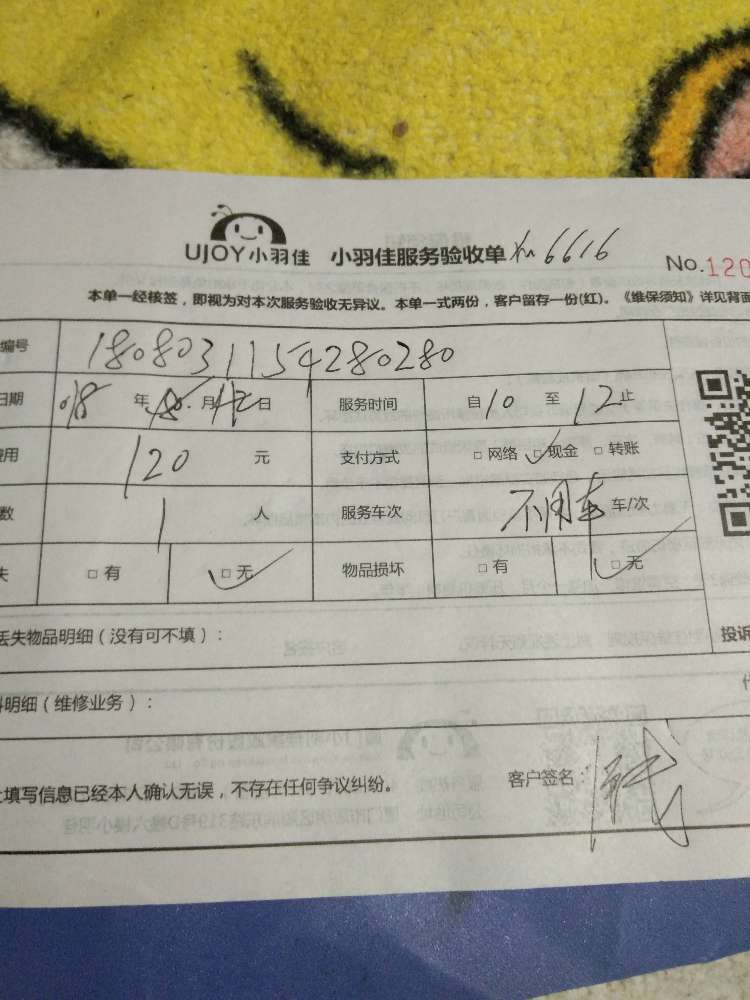 UJOY小羽佳 小羽佳服务验收单 6616
No.120
本单一经核签，即视为对本次服务验收无异议。本单一式两份，客户留存一份(红)。《维保须知》详见背面
编号 1808031154280280
日期 年 月 日 服务时间 自10至12止
费用 120 元 支付方式 □ 网络 □ 现金 □ 转账
数 1 人 服务车次 不用车 车/次
失 □ 有 □ 无 物品损坏 □ 有 □ 无
丢失物品明细（没有可不填）： 投诉
料明细（维修业务）：
上填写信息已经本人确认无误，不存在任何争议纠纷。 客户签名：